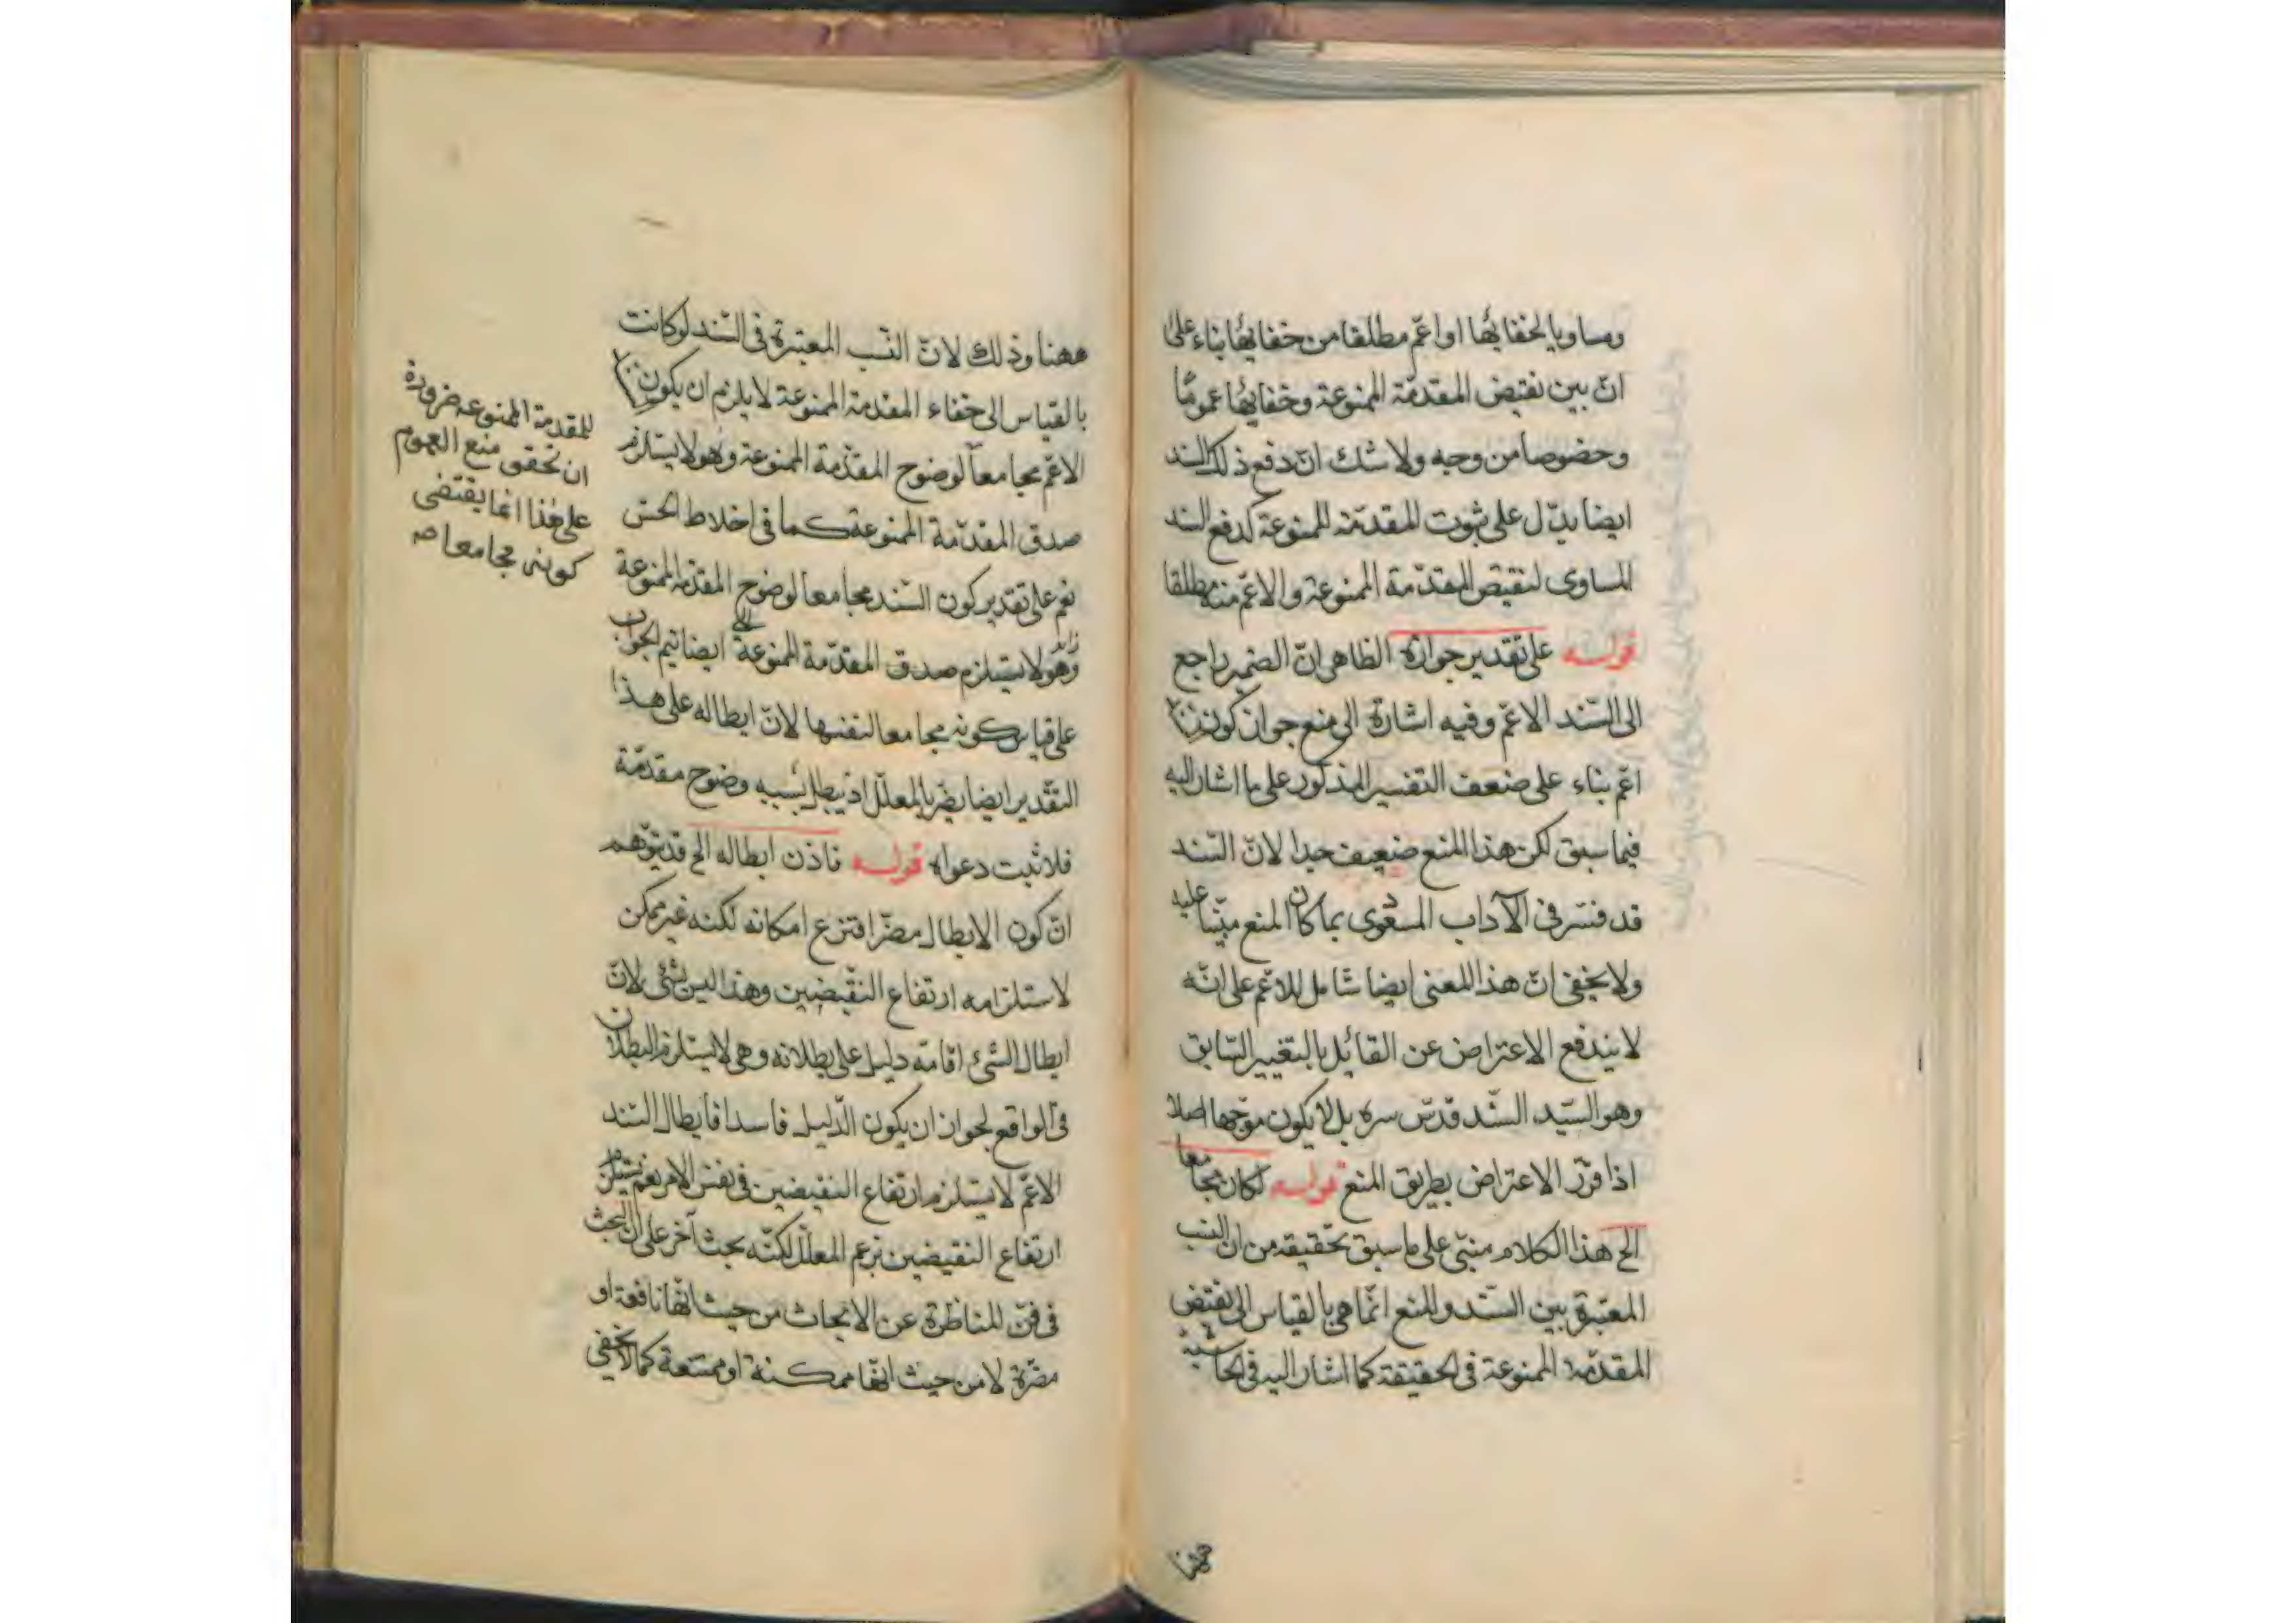 ومساويا لخفائها او اعم مطلقا من خفائها بناء على
ان بين نقيض المقدمة الممنوعة وخفائها عموما
وخصوصا من وجه ولا شك ان دفع ذلك السند
ايضا يدل على ثبوت المقدمة الممنوعة كدفع السند
المساوى لنقيض المقدمة الممنوعة والاعم منه مطلقا
قوله على تقدير جوازه الظاهر ان الضمير راجع
الى السند الاعم وفيه اشارة الى منع جواز كون السند
اعم بناء على ضعف التفسير المذكور على ما اشار اليه
فيما سبق لكن هذا المنع ضعيف جدا لان السند
قد فسر فى الآداب المسعودى بما كان المنع مبنيا عليه
ولا يخفى ان هذا المعنى ايضا شامل للاعم على انه
لا يندفع الاعتراض عن القائل بالتغيير السابق
وهو السيد السند قدس سره بل لا يكون موجها اصلا
اذا قرر الاعتراض بطريق المنع قوله لكان مجامعا
الخ هذا الكلام مبنى على ما سبق تحقيقه من ان النسب
المعتبرة بين السند والمنع انما هى بالقياس الى نقيض
المقدمة الممنوعة فى الحقيقة كما اشار اليه فى الحاشية
ههنا
ههنا وذلك لان النسب المعتبرة فى السند لو كانت
بالقياس الى خفاء المقدمة الممنوعة لا يلزم ان يكون السند
الاعم مجامعا لوضوح المقدمة الممنوعة وهو لا يستلزم
صدق المقدمة الممنوعة كما فى اغلاط الحس
نعم على تقدير كون السند مجامعا لوضوح المقدمة الممنوعة
وهو لا يستلزم صدق المقدمة الممنوعة ايضا يتم الجواب
على قياس كونه مجامعا لنفسها لان ابطاله على هذا
التقدير ايضا يضر بالمعلل اذ يبطل بسببه وضوح مقدمة
فلا يثبت دعواه قوله فاذن ابطاله الخ قد يتوهم
ان كون الابطال مضرا فتزع امكانه لكنه غير ممكن
لاستلزامه ارتفاع النقيضين وهذا ليس بشئ لان
ابطال الشئ اقامة دليل على بطلانه وهى لا يستلزم البطلان
فى الواقع لجواز ان يكون الدليل فاسدا فابطال السند
الاعم لا يستلزم ارتفاع النقيضين فى نفس الامر نعم يستلزم
ارتفاع النقيضين بزعم المعلل لكنه بحث آخر على ان البحث
فى فن المناظرة عن الابحاث من حيث انها نافعة او
مضرة لا من حيث انها ممكنة او ممتنعة كما لا يخفى
للمقدمة الممنوعه ضرورة
ان تحقق منع العموم
على هذا انما يقتضى
كونه مجامعا صه